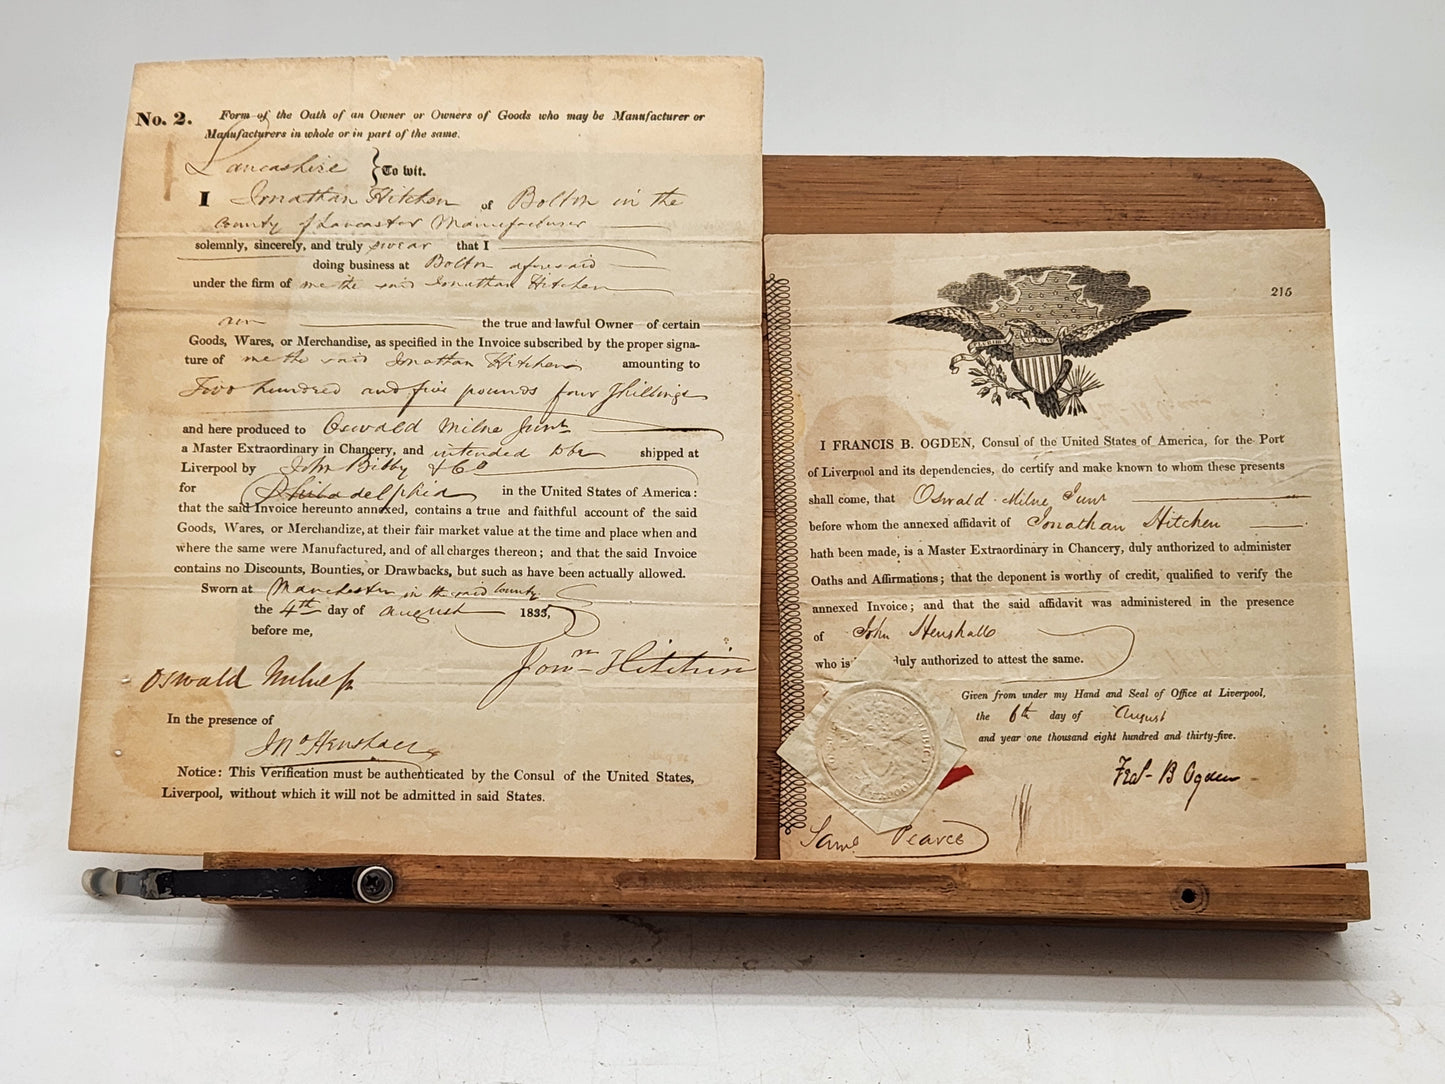 No. 2. Form of the Oath of an Owner or Owners of Goods who may be Manufacturer or
Manufacturers in whole or in part of the same.
Lancashire } To wit.
I Jonathan Hitchen of Bolton in the
County of Lancaster Manufacturer
solemnly, sincerely, and truly swear that I
doing business at Bolton aforesaid
under the firm of me the said Jonathan Hitchen
am the true and lawful Owner of certain
Goods, Wares, or Merchandise, as specified in the Invoice subscribed by the proper signa-
ture of me the said Jonathan Hitchen amounting to
Two hundred and five pounds four Shillings
and here produced to Oswald Milne Junr
a Master Extraordinary in Chancery, and intended to be shipped at
Liverpool by John Bibby & Co
for Philadelphia in the United States of America:
that the said Invoice hereunto annexed, contains a true and faithful account of the said
Goods, Wares, or Merchandize, at their fair market value at the time and place when and
where the same were Manufactured, and of all charges thereon; and that the said Invoice
contains no Discounts, Bounties, or Drawbacks, but such as have been actually allowed.
Sworn at Manchester in the said County
the 4th day of August 1835,
before me,
Jonn Hitchin
Oswald Milne Jr
In the presence of
Jno Henshall
Notice: This Verification must be authenticated by the Consul of the United States,
Liverpool, without which it will not be admitted in said States.
215
I FRANCIS B. OGDEN, Consul of the United States of America, for the Port
of Liverpool and its dependencies, do certify and make known to whom these presents
shall come, that Oswald Milne Junr
before whom the annexed affidavit of Jonathan Hitchen
hath been made, is a Master Extraordinary in Chancery, duly authorized to administer
Oaths and Affirmations; that the deponent is worthy of credit, qualified to verify the
annexed Invoice; and that the said affidavit was administered in the presence
of John Henshall
who is duly authorized to attest the same.
Given from under my Hand and Seal of Office at Liverpool,
the 6th day of August
and year one thousand eight hundred and thirty-five.
Fras B Ogden
LIVERPOOL
Saml Pearce